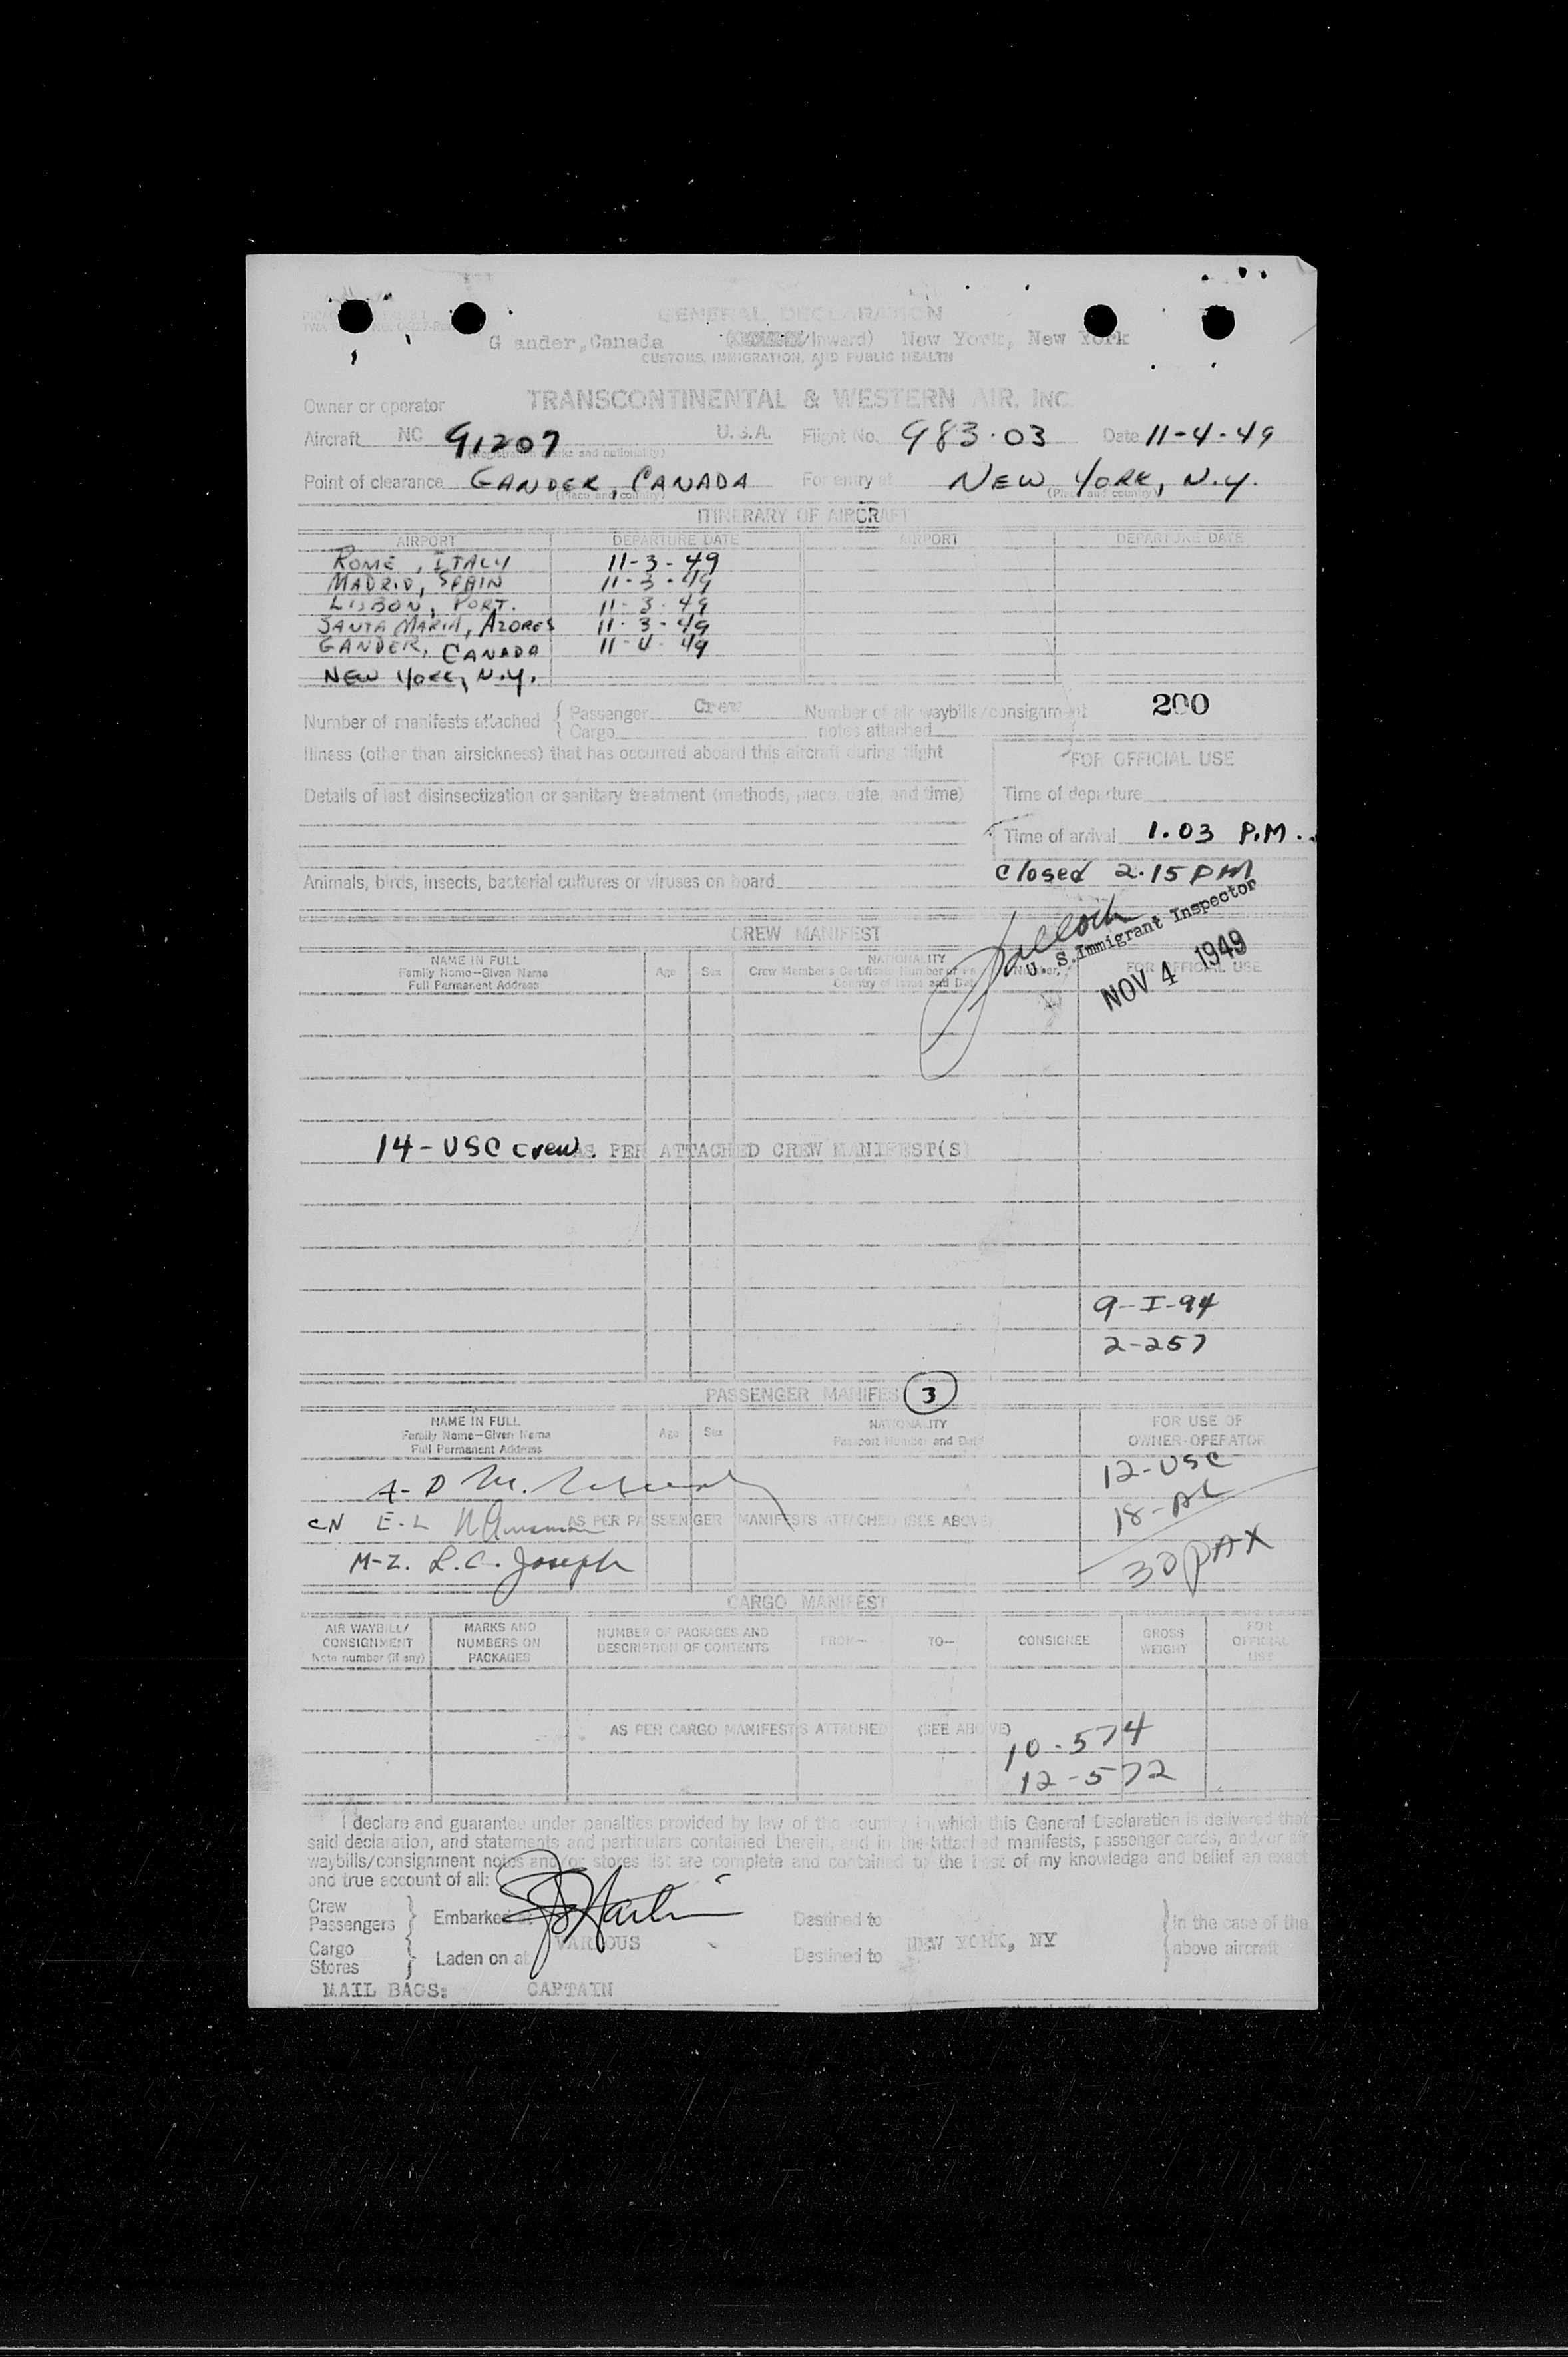 GENERAL DECLARATION
G ander,Canada /Inward) New York, New York
CUSTOMS, IMMIGRATION, AND PUBLIC HEALTH
Owner or operator TRANSCONTINENTAL & WESTERN AIR, INC.
Aircraft NC 91207 U.S.A. Flight No. 983-03 Date 11-4-49
(Registration marks and nationality)
Point of clearance GANDER, CANADA For entry at NEW YORK, N.Y.
(Place and country) (Place and country)
ITINERARY OF AIRCRAFT
AIRPORT DEPARTURE DATE AIRPORT DEPARTURE DATE
ROME, ITALY 11-3-49
MADRID, SPAIN 11-3-49
LISBON, PORT. 11-3-49
SANTA MARIA, AZORES 11-3-49
GANDER, CANADA 11-4-49
NEW YORK, N.Y.
200
Number of manifests attached { Passenger Crew Number of air waybills/consignment
Cargo notes attached
Illness (other than airsickness) that has occurred aboard this aircraft during flight
FOR OFFICIAL USE
Details of last disinsectization or sanitary treatment (methods, place, date, and time)
Time of departure
Time of arrival 1.03 P.M.
closed 2.15 PM
Animals, birds, insects, bacterial cultures or viruses on board
U. S. Immigrant Inspector
NOV 4 1949
CREW MANIFEST
NAME IN FULL
Family Name—Given Name
Full Permanent Address
Age Sex
NATIONALITY
Crew Member's Certificate Number or Number,
Country of Issue and Date
FOR OFFICIAL USE
14-USC crew. AS PER ATTACHED CREW MANIFEST(S)
9-I-94
2-257
PASSENGER MANIFEST 3
NAME IN FULL
Family Name—Given Name
Full Permanent Address
Age Sex
NATIONALITY
Passport Number and Date
FOR USE OF
OWNER-OPERATOR
12-USC
A-D M.
18-AL
CN E-L AS PER PASSENGER MANIFESTS ATTACHED (SEE ABOVE)
30 PAX
M-Z. L.C. Joseph
CARGO MANIFEST
AIR WAYBILL/
CONSIGNMENT
Note number (if any)
MARKS AND
NUMBERS ON
PACKAGES
NUMBER OF PACKAGES AND
DESCRIPTION OF CONTENTS
FROM— TO— CONSIGNEE
GROSS
WEIGHT
FOR
OFFICIAL
USE
AS PER CARGO MANIFESTS ATTACHED (SEE ABOVE)
10-574
12-572
I declare and guarantee under penalties provided by law of the country in which this General Declaration is delivered that
said declaration, and statements and particulars contained therein, and in the attached manifests, passenger cards, and/or air
waybills/consignment notes and/or stores list are complete and contained to the best of my knowledge and belief an exact
and true account of all:
Crew
Passengers } Embarked at Destined to } In the case of the
Cargo VARIOUS NEW YORK, NY above aircraft
Stores } Laden on at Destined to
MAIL BAGS: CAPTAIN